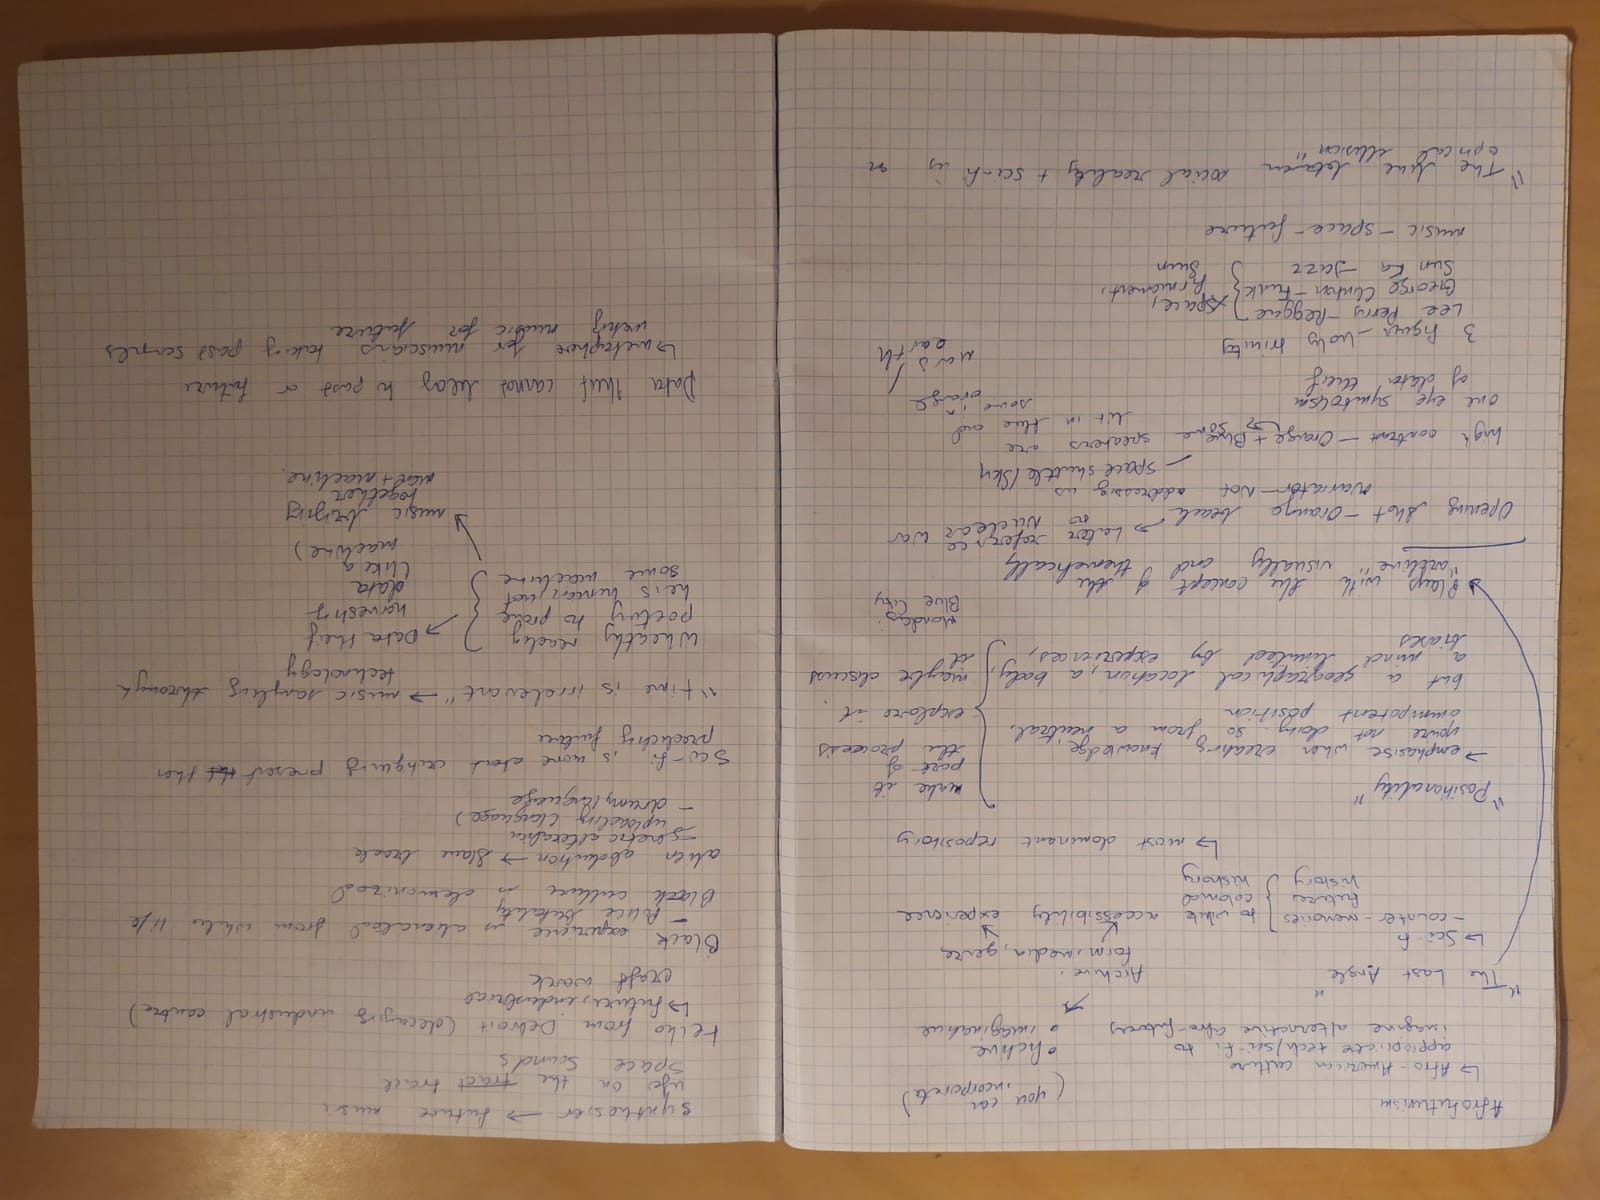 Afrofuturism
↳ Afro-American culture
appropriate tech/sci-fi to
imagine alternative afro-futures
(you can
incorporate)
• fictive
• imaginative
"The Last Angle"
Archive.
form, media, genre,
↳ Sci-fi
- counter-memories
future
history
to white
colonial
history
accessibility
experience
↳ most dominant repository
"Positionality"
→ emphasise when creating knowledge,
you're not doing so from a neutral,
omnipotent position
but a geographical location, a body,
a mind limited by experiences,
biases
make it
part of
the process
explore it.
maybe discuss
it
Monday:
Blue City
Plays with the concept of the
"archive" visually and thematically
Opening Shot - Orange beach
→ Later reference
to Nuclear War
Narrator - Not addressing us
space shuttle/Sky
high contrast - Orange + Blue
→ some speakers are
lit in blue and
some in
orange
one eye symbolism
of data theif
mars
earth
3 figures - holy trinity
Lee Perry - Reggae
George Clinton - Funk
Sun Ra - Jazz
space,
firmament,
Sun
music - space - future
"The line between social reality + sci-fi is an
optical illusion"
synthesier → future music
ufo on the tract track
Space Sounds
tekno from Detroit (decaying industrial centre)
↳ future, industrial
craft work
Black experience is alienated from white life
- Police brutality
Black culture is demonized
alien abduction → Slave trade
- genetic alteration
- uploading (language)
- drums, language
Sci-fi is more about critiquing present that then
predicting future
"time is irrelevant" → music sampling through
technology
reading
poetry to prove
he is human, not
some machine
→ Data theif
harvesting
data
(like a
machine)
music bringing
together
man + machine.
Data theif cannot belong to past or future
↳ metaphore for musicians taking past samples
making music for future